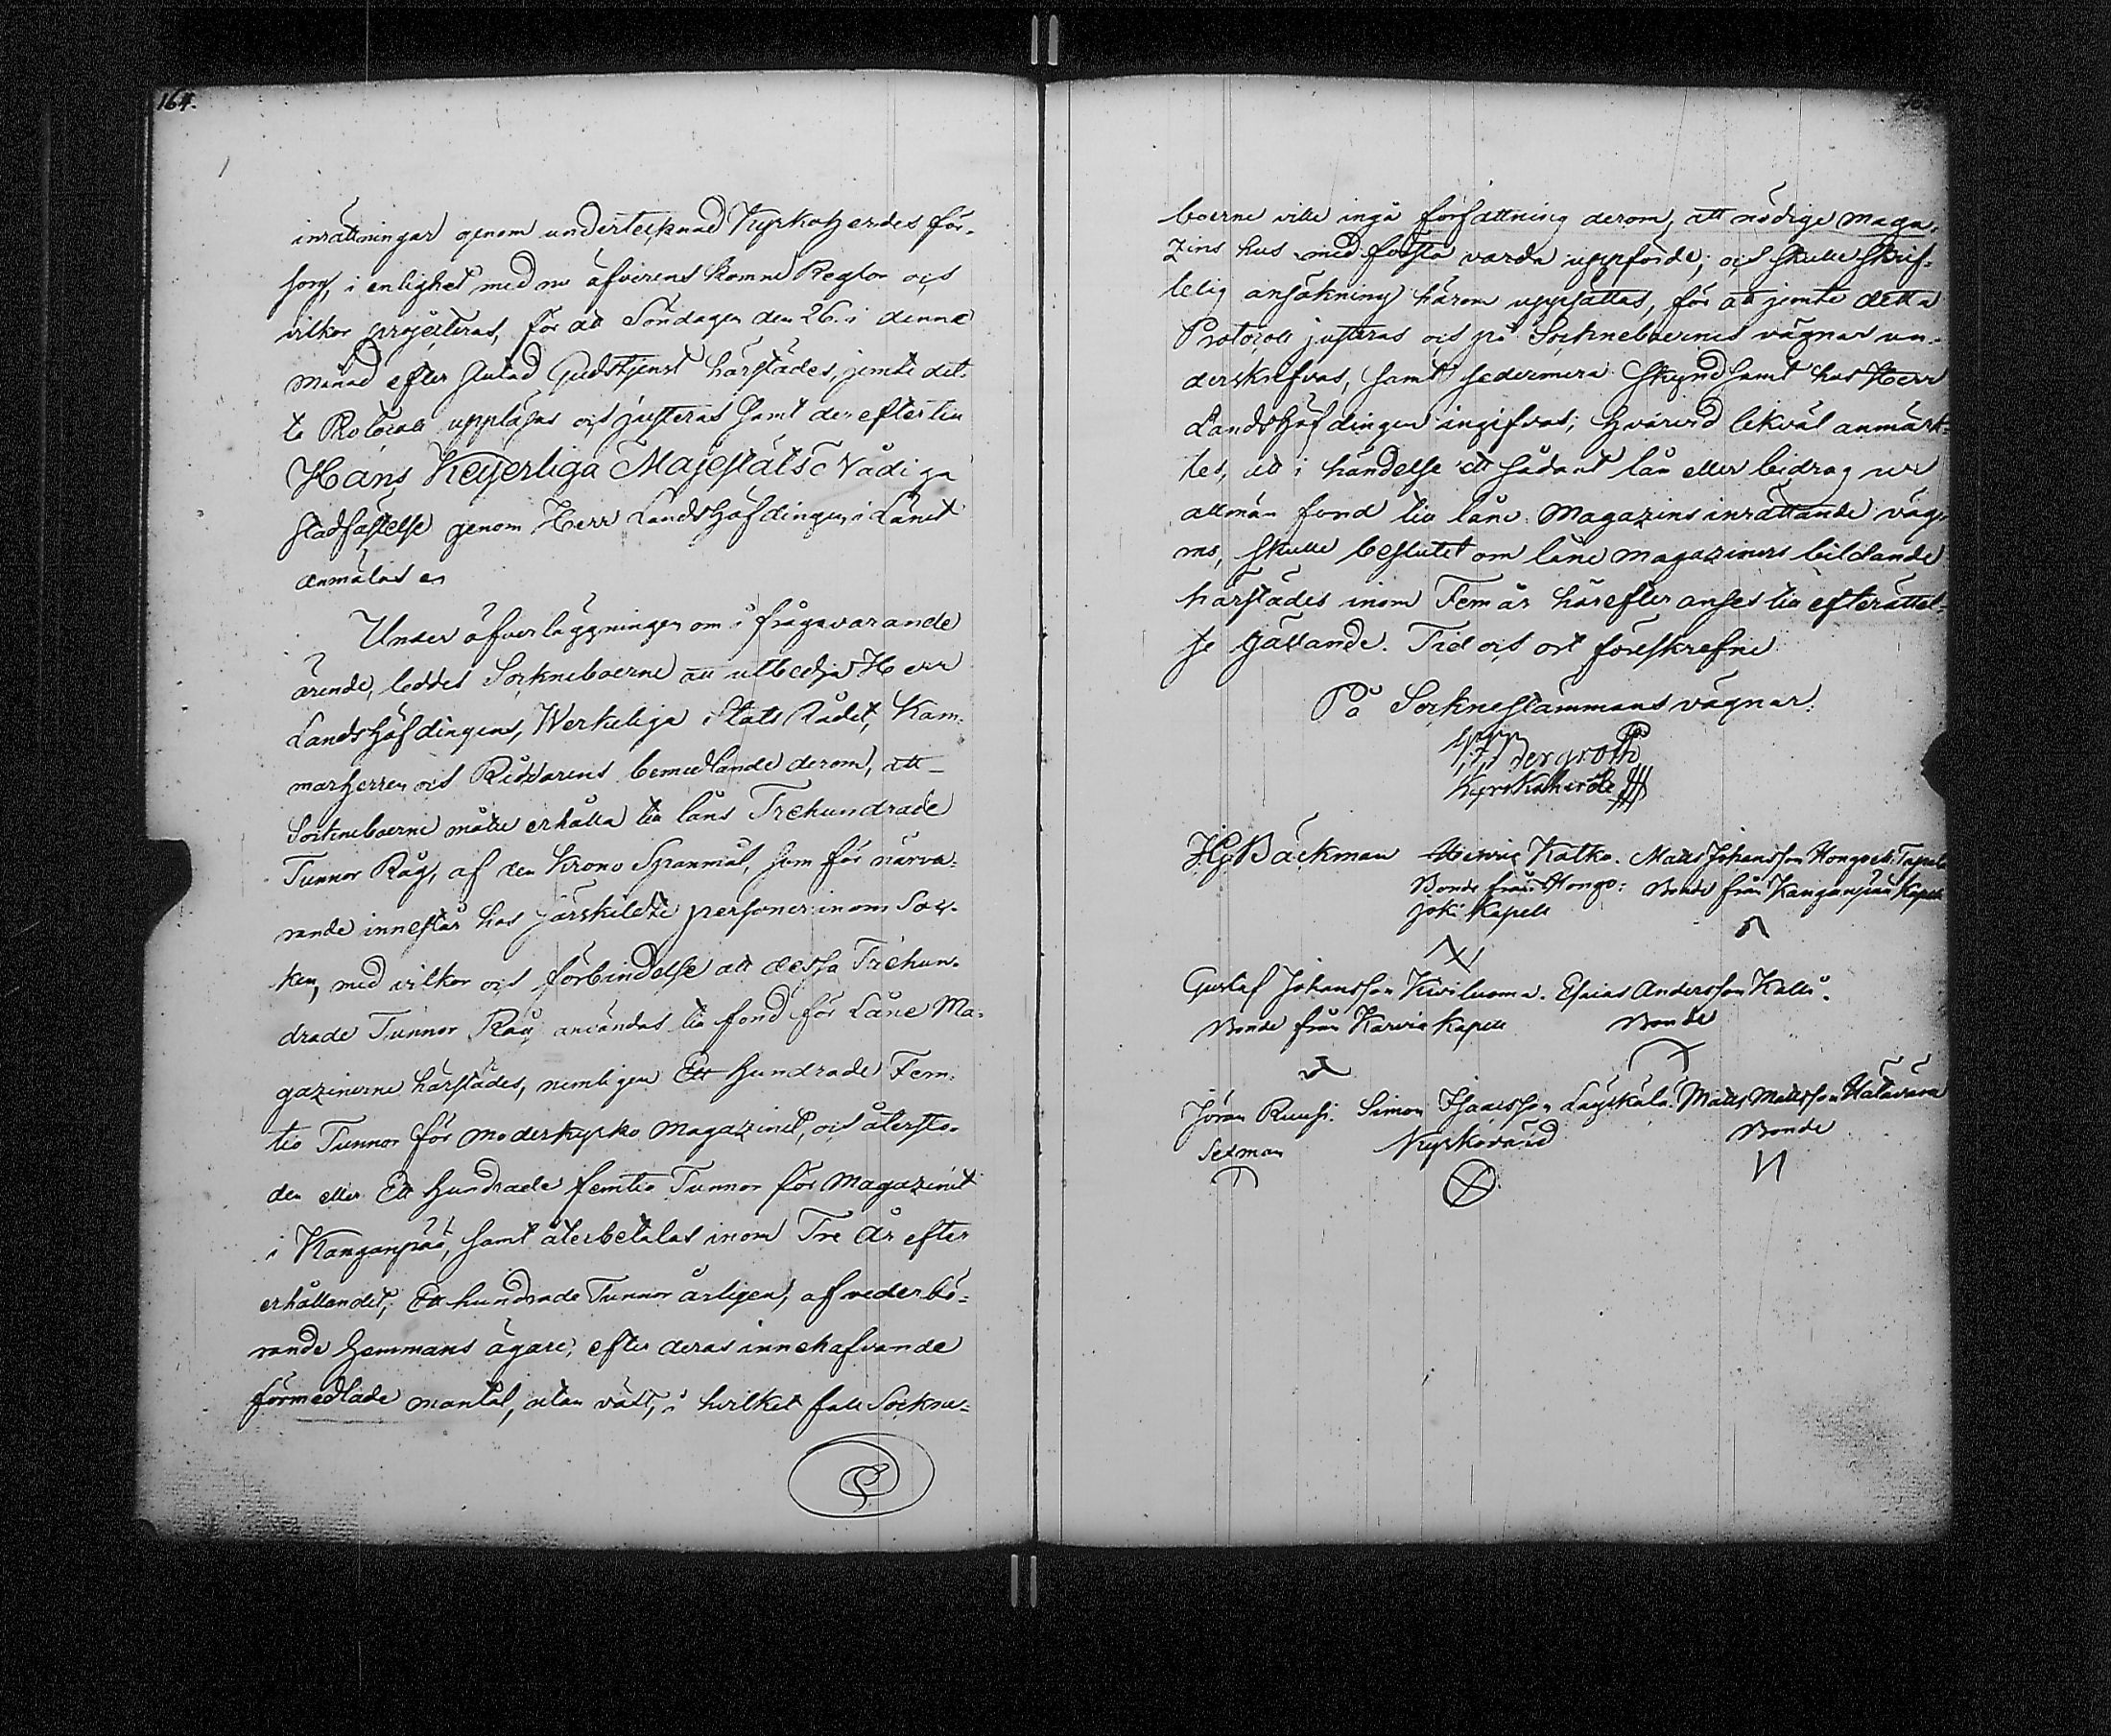 164.
inrättningar genom undertecknad Kyrkoherdes för-
sorg, i enlighet med nu öfverenskomne Reglor och
vilkor projecteras, för att Söndagen den 26. i denna
månad efter slutad Gudstjenst härstädes, jemte det-
ta Protocoll uppläsas och justeras samt derefter till
Hans Keyserliga Majestäts Nådiga
stadfästelse genom Herr Landshöfdingen i Länet
anmälas
Under öfverläggningen om i frågavarande
ärende, beddes Sockneboerne att utbedja Herr
Landshöfdingens, Werkeliga Stats Rådet, Kam-
marherren och Riddarens bemedlande derom, att
Sockneboerne måtte erhålla till låns Trehundrade
Tunnor Råg, af den Krono Spanmål, som för närva-
rande innestår hos särskildte personer inom Soc-
ken, med vilkor och förbindelse att dessa Trehun-
drade Tunnor Råg användas till fond för Låne Ma-
gazinerne härstädes, nemligen Ett Hundrade Fem-
tio Tunnor för moderkyrko magazinet, och återsto-
den eller Ett Hundrade femtio Tunnor för Magazinet
i Kanganpää, samt återbetalas inom Tre År efter
erhållandet; Ett hundrade Tunnor årligen, af vederbö-
rande Hemmans ägare, efter deras innehafvande
förmedlade mantal, utan växt, i hvilket fall Sockne-
boerne ville ingå författning derom, att nödige maga-
zins hus med första varda uppförde; och skulle skrif-
telig ansökning härom uppsättas, för att jemte detta
Protocoll justeras och på Sockneboernes vägnar un-
derskrifvas, samt sedermera skyndsamt hos Herr
Landshöfdingen ingifvas; Hvarvid likväl anmärk-
tes, att i händelse ett sådant lån eller bidrag ur
allmän fond till låne Magazins inrättande väg-
ras, skulle beslutet om låne magaziners bildande
härstädes inom Fem år härefter anses till efterättel-
se gällande. Tid och ort föreskrefne
På Sockne stämmans vägnar:
Bergroth
Kyrkoherde
Hg Bäckman Henric Katko. Matts Johansson Tapala
Bonde från Hongo- Bonde från Kanganpää Kapell
joki Kapell
Gustaf Johansson Kiviluoma. Esaias Andersson Kallo.
Bonde från Karvia Kapell Bonde
Jöran Ruusi. Simon Isacsson Läyskälä. Matts Mattsson Hatavara
Sexman Kyrkovärd Bonde